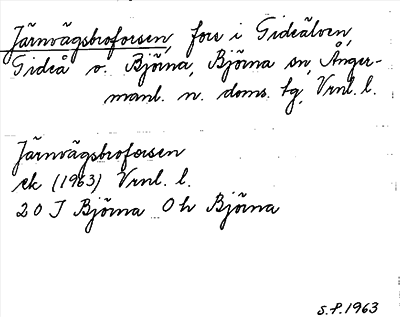 Järnvägsbroforsen, fors i Gideälven,
Gideå o. Björna, Björna sn, Ånger-
manl. n. doms. tg, Vrnl. l.
Järnvägsbroforsen
ek (1963) Vrnl. l.
20 J Björna 0h Björna
S.P.1963